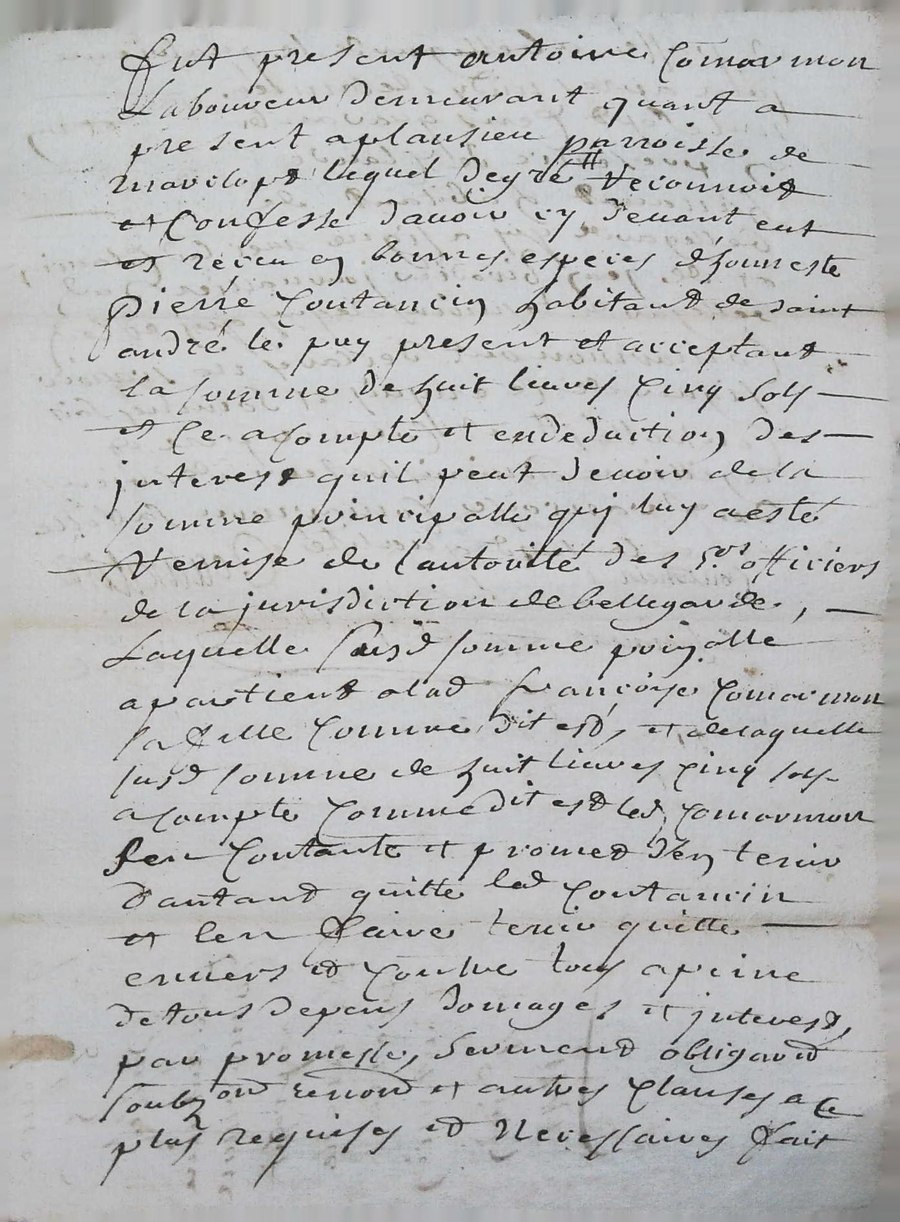 fut present antoine Comarmon
Laboureur demeurant quant a
present a plansieu parroisse de
marclopt lequel degré reconnoist
et Confesse davoir cy devant eut
et receu en bonnes especes d'honneste
pierre Coutancin habitant de saint
andré le puy present et acceptant
la somme de huit livres Cinq sols
et Ce a Compte et en deduction des
interest quil peut devoir de la
somme principalle quy luy a esté
remise de lautorité des srs officiers
de la jurisdiction de bellegarde,
Laquelle susd somme prinalle
apartient alad françoise Comarmon
sa fille Comme dit est, et de laquelle
susd somme de huit livres Cinq sols
a Compte Comme dit est led Comarmon
sen Contante et promet d'en tenir
dautant quitte led Coutancin
et len faire tenir quitte
envers et Contre tous a peine
de tous depens domages et interest,
par promesse, serment obligaon
soubzon renon et autres Clauses a Ce
plus requises et Necessaires fait